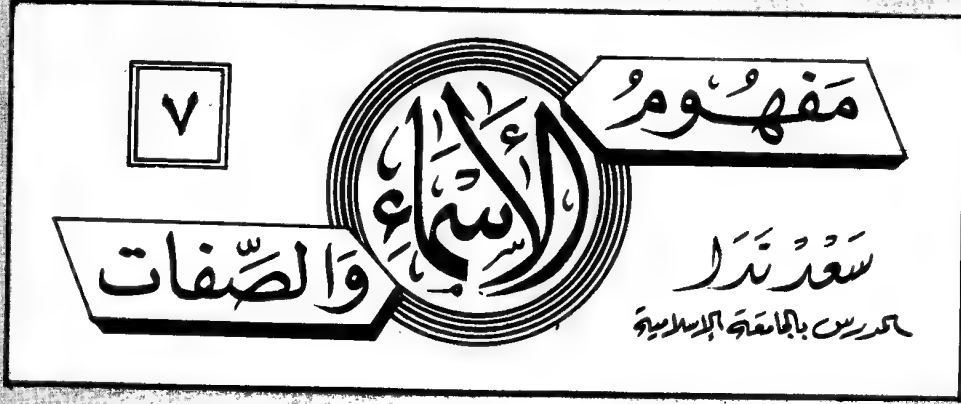 مَفهُومُ
الأَسْمَاءِ
وَالصِّفَات
٧
سَعْدُ نَدَا
المدرس بالجامعة الإسلامية